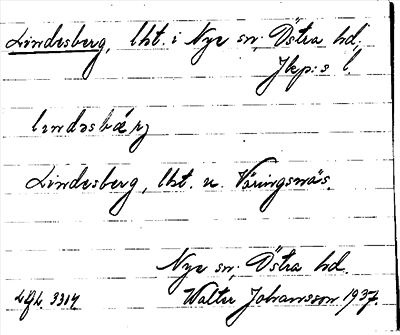 Lindesberg, lht. i Nye sn, Östra hd,
Jkp:s l.
lındəsbærj
Lindesberg, lht. u. Väringsnäs.
Nye sn, Östra hd.
Lgh. 3314 Walter Johansson 1937.